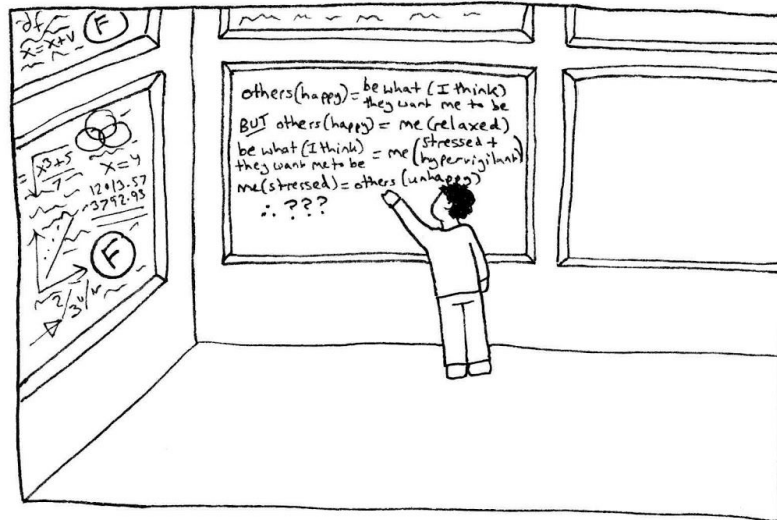 ∂f
x=x+v
F
√x³+5
7
x=y
12013.57
3792.93
F
2/3
others(happy)= be what (I think)
they want me to be
BUT others(happy) = me(relaxed)
be what (I think)
they want me to be = me(stressed +
hypervigilant)
me(stressed)= others(unhappy)
∴ ???